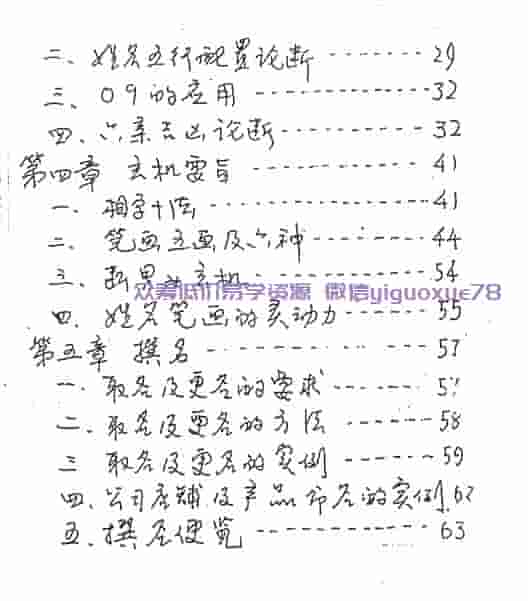 二、姓名五行配置论断 -------- 29
三、09的应用 ------------- 32
四、六亲吉凶论断 ----------- 32
第四章 玄机要旨 ------------ 41
一、相字十法 --------------- 41
二、笔画五画及六神 --------- 44
三、 玄机 ------------- 54
众筹低价易学资源 微信yiguoxue78
四、姓名笔画的灵动力 ------- 55
第五章 撰名 --------------- 57
一、取名及更名的要求 ------ 57
二、取名及更名的方法 ------ 58
三 取名及更名的实例 ------ 59
四、公司店铺及产品命名的实例 62
五、撰名便览 ------------- 63